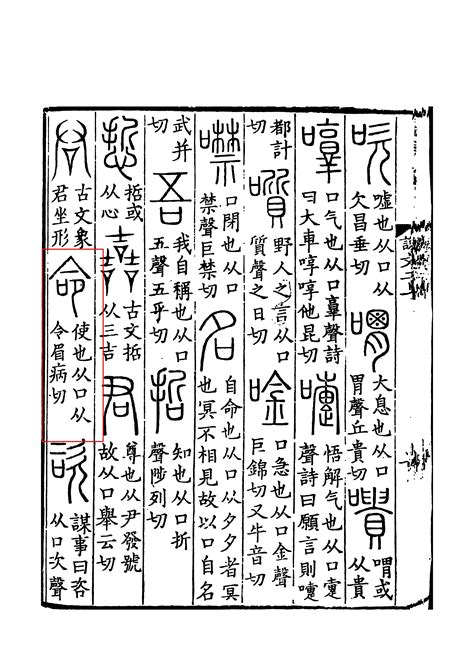 吹 噓也从口从欠昌垂切 喟 大息也从口胃聲丘貴切 嘳 喟或从貴
啍 口气也从口𦎫聲詩曰大車啍啍他昆切 嚏 悟解气也从口疐聲詩曰願言則嚏
都計切 㘉 野人之言从口質聲之日切 唫 口急也从口金聲巨錦切又牛音切
噤 口閉也从口禁聲巨禁切 名 自命也从口从夕夕者冥也冥不相見故以口自名
武并切 吾 我自稱也从口五聲五乎切 哲 知也从口折聲陟列切
悊 哲或从心 嚞 古文哲从三吉 君 尊也从尹發號故从口舉云切
古文象君坐形 命 使也从口从令眉病切 咨 謀事曰咨从口次聲